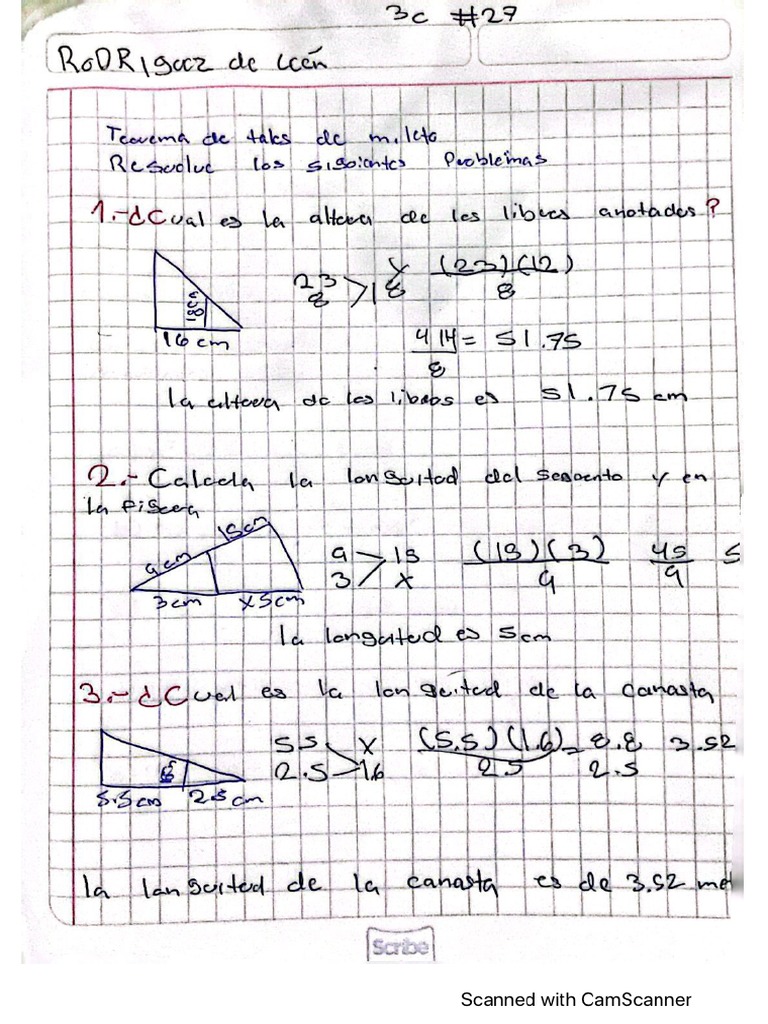 3c #27
RODRIguez de León
Teorema de tales de mileto
Resuelve los siguientes Problemas
1.-¿Cual es la altura de los libros anotados?
23 x (23)(12)
8 18 8
16 cm
414 = 51.75
8
la altura de los libros es 51.75 cm
2.- Calcula la longuitud del segmento y en
la figura
15cm
9cm
9 15 (15)(3) 45 5
3 x 9 9
3cm x5cm
la longuitud es 5cm
3.-¿Cual es la longuitud de la canasta
5.5 x (5.5)(1.6)= 8.8 3.52
2.5 1.6 2.5 2.5
5.5cm 2.5cm
la longuitud de la canasta es de 3.52 met
Scribe
Scanned with CamScanner